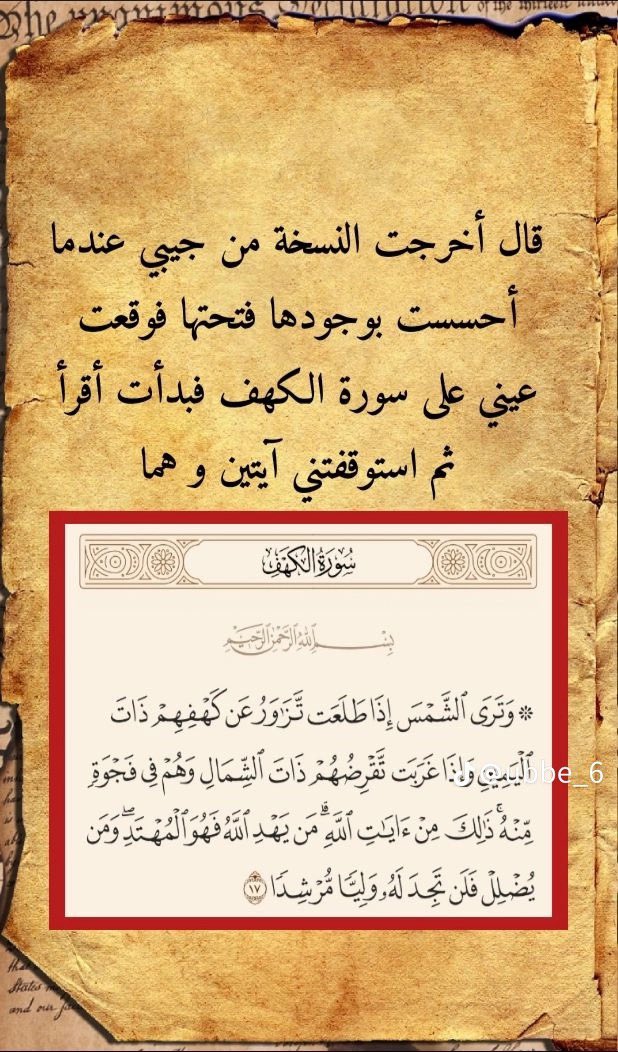 The unanimous Declaration of the thirteen united
قال أخرجت النسخة من جيبي عندما
أحسست بوجودها فتحتها فوقعت
عيني على سورة الكهف فبدأت أقرأ
ثم استوقفتني آيتين و هما
سُورَةُ الكَهْفِ
بِسْمِ اللَّهِ الرَّحْمَٰنِ الرَّحِيمِ
۞ وَتَرَى ٱلشَّمْسَ إِذَا طَلَعَت تَّزَٰوَرُ عَن كَهْفِهِمْ ذَاتَ
ٱلْيَمِينِ وَإِذَا غَرَبَت تَّقْرِضُهُمْ ذَاتَ ٱلشِّمَالِ وَهُمْ فِى فَجْوَةٍ
@ubbe_6
مِّنْهُ ۚ ذَٰلِكَ مِنْ ءَايَٰتِ ٱللَّهِ ۗ مَن يَهْدِ ٱللَّهُ فَهُوَ ٱلْمُهْتَدِ ۖ وَمَن
يُضْلِلْ فَلَن تَجِدَ لَهُۥ وَلِيًّا مُّرْشِدًا ١٧
that
States
and our